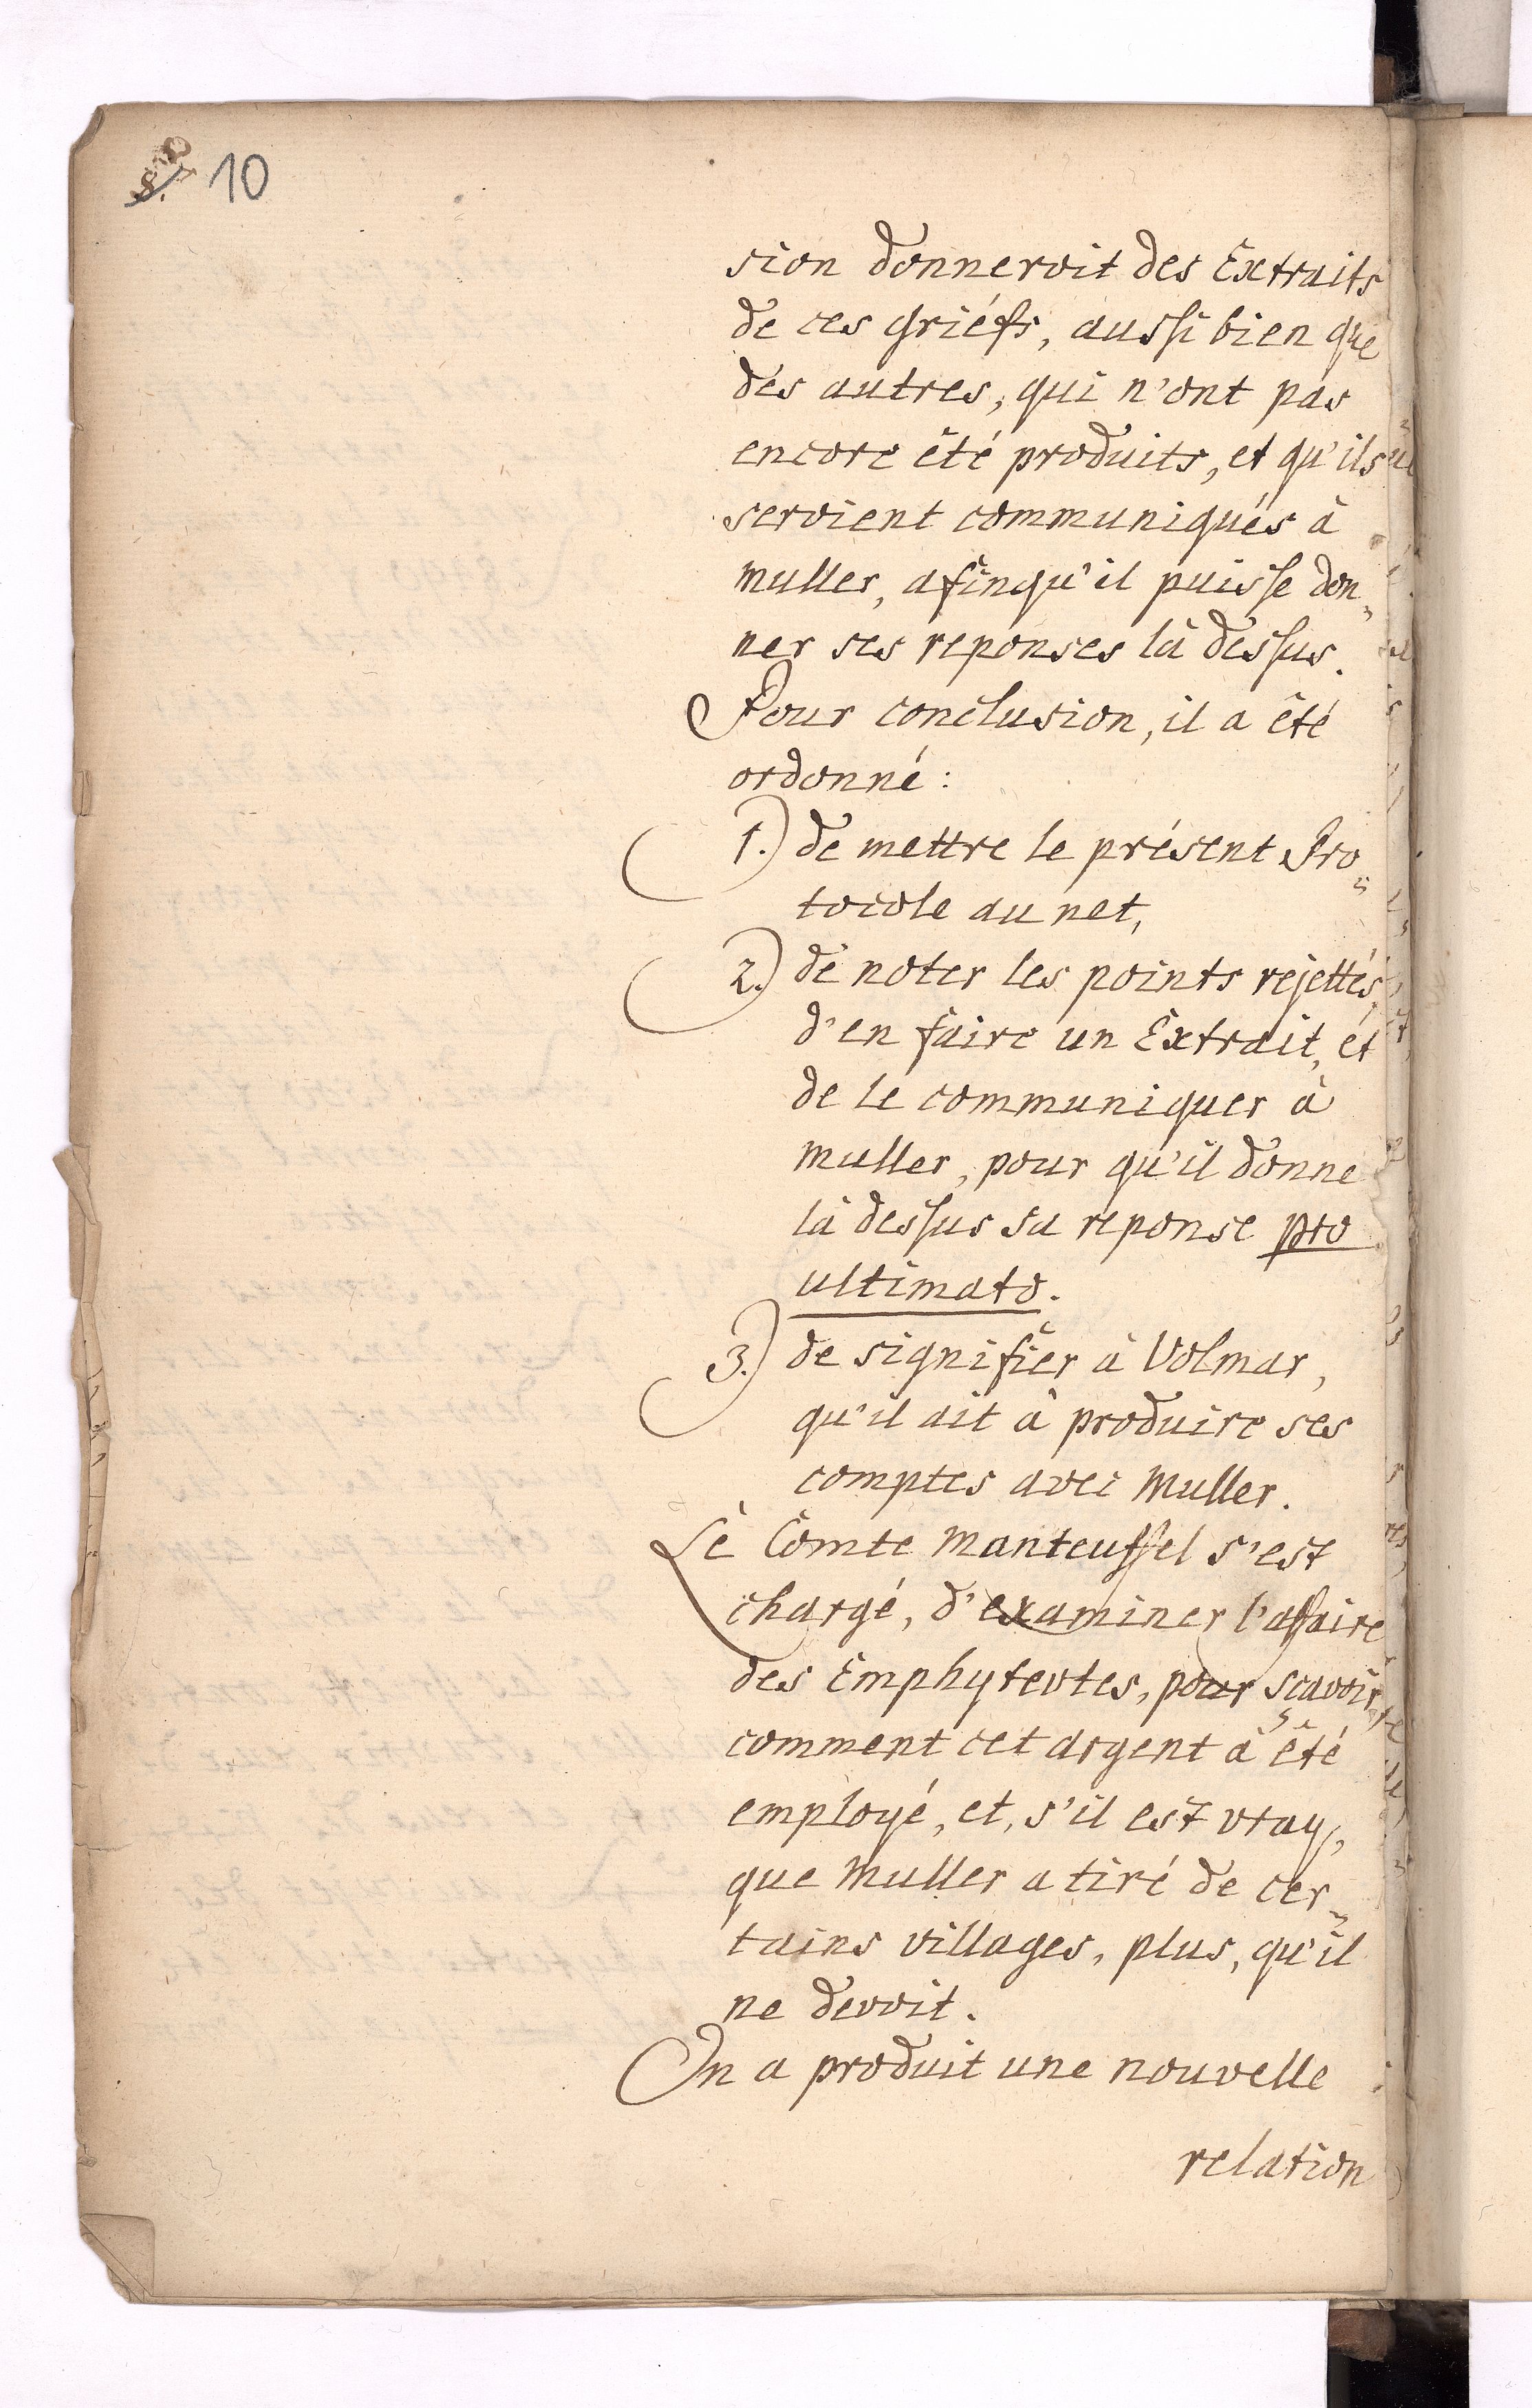 10
sion donneroit des Extraits
de ces griéfs, aussi bien que
des autres, qui n'ont pas
encore été produits, et qu'ils
seroient communiqués à
Muller, afinqu'il puisse don„
ner ses reponses là dessus.
Pour conclusion, il a été
ordonné:
1.) de mettre le présent Pro„
tocole au net,
2.) de noter les points rejettés,
d'en faire un Extrait, et
de le communiquer à
Muller, pour qu'il donne
là dessus sa reponse pro
ultimato.
3.) de signifier à Volmar,
qu'il ait à produire ses
comptes avec Muller.
Le Comte Manteuffel s'est
chargé, d'examiner l'affaire
des Emphyteotes, pour sçavoir,
comment cet argent à été
employé, et, s'il est vray,
que Muller a tiré de cer„
tains villages, plus, qu'il
ne devoit.
On a produit une nouvelle
relation